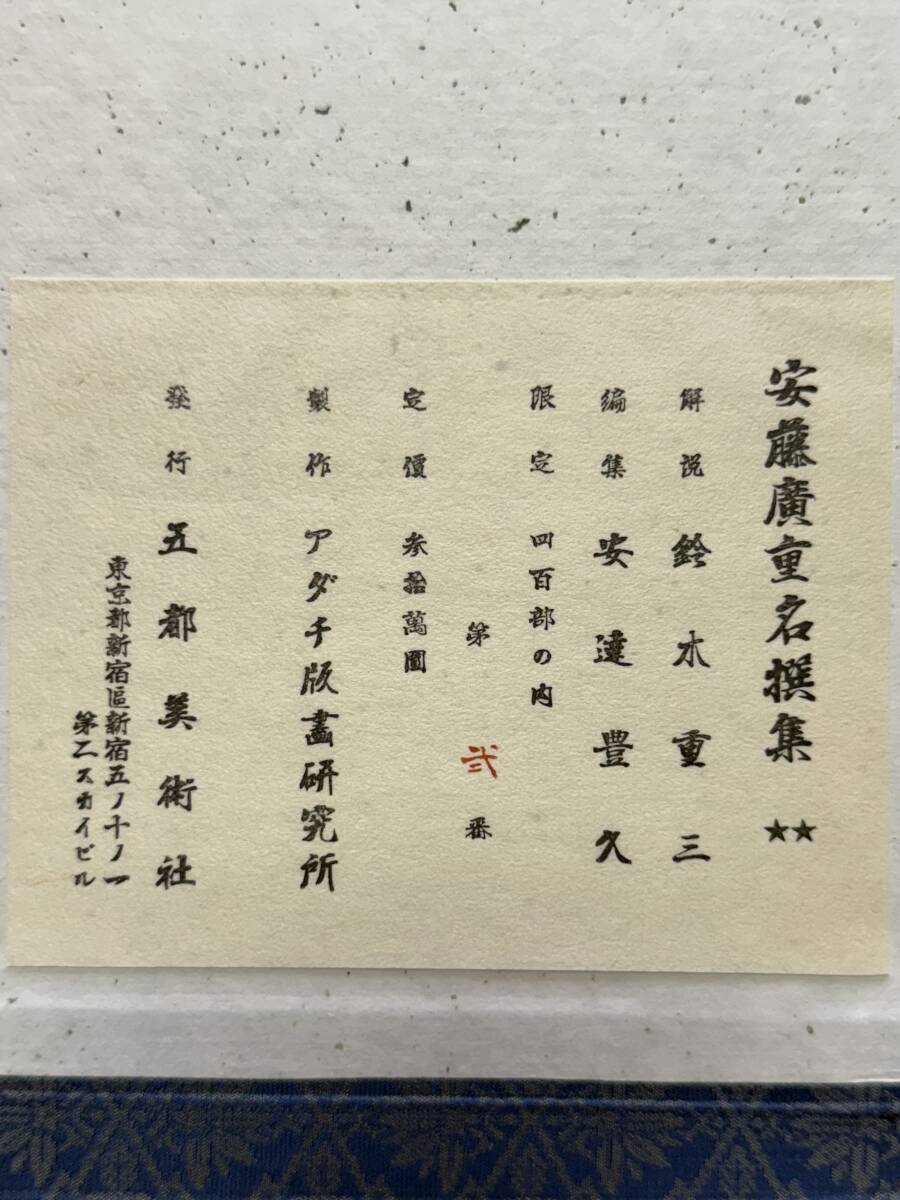 安藤廣重名撰集 ★★
解説 鈴木重三
編集 安達豊久
限定 四百部の内
第 弐 番
定價 参拾萬圓
製作 アダチ版畫研究所
發行 五都美術社
東京都新宿區新宿五ノ十ノ一
第二スカイビル